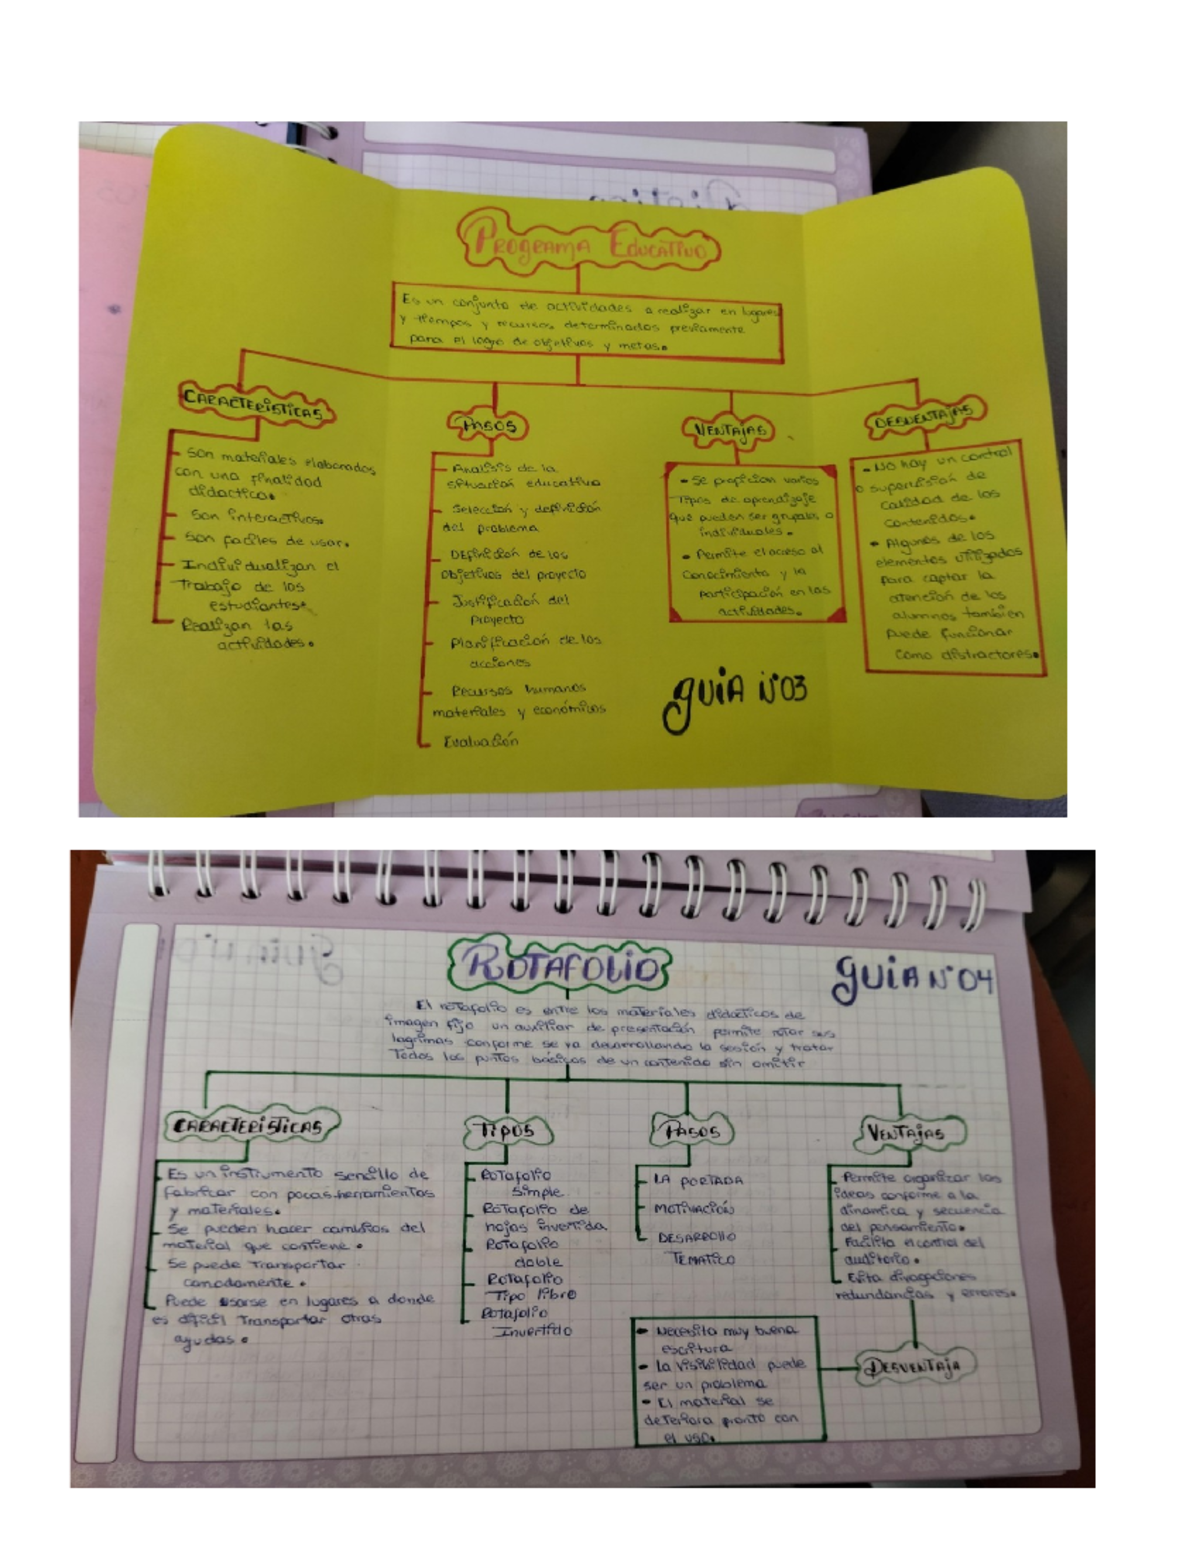 PROGRAMA EDUCATIVO
Es un conjunto de actividades a realizar en lugares
y tiempos y recursos determinados previamente
para el logro de objetivos y metas.
CARACTERISTICAS
- Son materiales elaborados
con una finalidad
didactica.
- Son interactivos.
- Son faciles de usar.
- Individualizan el
Trabajo de los
estudiantes.
- Realizan las
actividades.
PASOS
- Analisis de la
situacion educativa
- Selección y definición
del problema
- Definición de los
objetivos del proyecto
- Justificación del
Proyecto
- Planificación de los
acciones
- Recursos humanos
materiales y económicos
- Evaluación
VENTAJAS
- Se propician varios
Tipos de aprendizaje
que pueden ser grupales o
individuales.
- Permite el acceso al
conocimiento y la
participación en las
actividades.
DESVENTAJAS
- No hay un control
o supervisión de
calidad de los
contenidos.
- Algunos de los
elementos utilizados
para captar la
atención de los
alumnos tambien
puede funcionar
como distractores.
GUIA N°03
ROTAFOLIO
GUIA N°04
El rotafolio es entre los materiales didacticos de
imagen fijo un auxiliar de presentación permite rotar sus
conforme se va desarrollando la sesión y tratar
Todos los puntos básicos de un contenido sin omitir
CARACTERISTICAS
- Es un instrumento sencillo de
fabricar con pocas herramientas
y materiales.
- Se pueden hacer cambios del
material que contiene.
- Se puede transportar
comodamente.
- Puede usarse en lugares a donde
es dificil Transportar otras
ayudas.
TIPOS
- Rotafolio
simple
- Rotafolio de
hojas invertida
- Rotafolio
doble
- Rotafolio
Tipo libre
- Rotafolio
Invertido
PASOS
- LA PORTADA
- MOTIVACIÓN
- DESARROLLO
TEMATICO
VENTAJAS
- Permite organizar las
ideas conforme a la
dinamica y secuencia
del pensamiento.
- Facilita el control del
auditorio.
- Evita divagaciones
redundancias y errores.
DESVENTAJA
- Necesita muy buena
escritura
- La visibilidad puede
ser un problema
- El material se
deteriora pronto con
el uso.